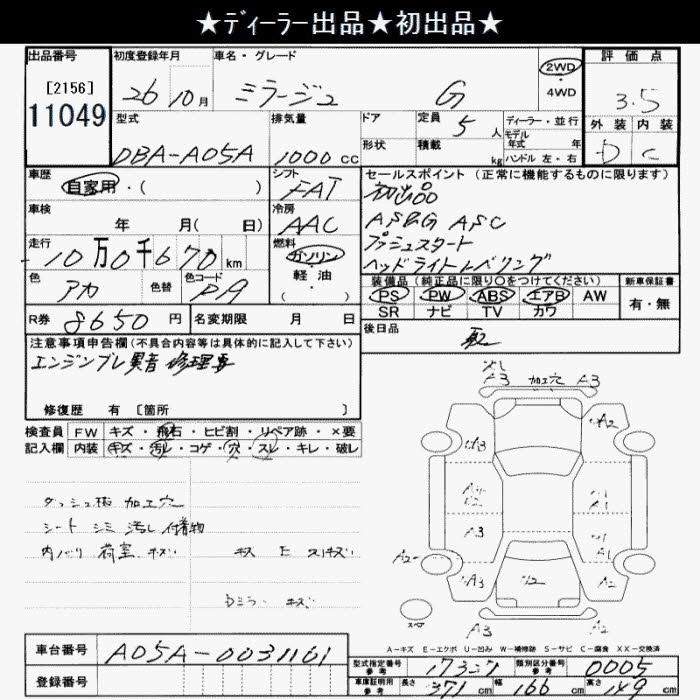 ★ディーラー出品★初出品★
出品番号 初度登録年月 車名・グレード 2WD・4WD 評価点
[2156] 11049 26 10月 ミラージュ G 3.5
型式 排気量 ドア 定員 5人 ディーラー・並行 外装 内装
DBA-A05A 1000cc 形状 積載 kg モデル年式 年 ハンドル 左・右 D C
車歴 シフト セールスポイント (正常に機能するものに限ります)
自家用・( ) FAT 初出品
車検 冷房 AS&G ASC
年 月( 日) AAC プッシュスタート
走行 燃料 ヘッドライトレベリング
10万0千670km ガソリン
軽・油
( )
色 色替 色コード 装備品 (純正品に限り○をつけてください) 新車保証書
アカ PA PS PW ABS エアB AW 有・無
SR ナビ TV カワ
R券 8650円 名変期限 月 日 後日品
注意事項申告欄(不具合内容等は具体的に記入して下さい) 取
エンジンブレ異音 修理要
修復歴 有 [箇所 ]
検査員 FW キズ・飛石・ヒビ割・リペア跡・×要
記入欄 内装 キズ・汚れ・コゲ・穴・スレ・キレ・破レ
A3 加工穴 A3
A2
A3
A2
A1
A3 A2
A2 A3
ダッシュ板 加工穴
シート シミ 汚れ 付着物
内バリ 荷室 キズ
Dミラー キズ
A-キズ E-エクボ U-凹み W-補修跡 S-サビ C-腐食 XX-交換済
車台番号 A05A-0031161
型式指定番号 参考 17327 類別区分番号 参考 0005
登録番号
車庫証明用 参考 長さ 371cm 幅 166cm 高さ 149cm